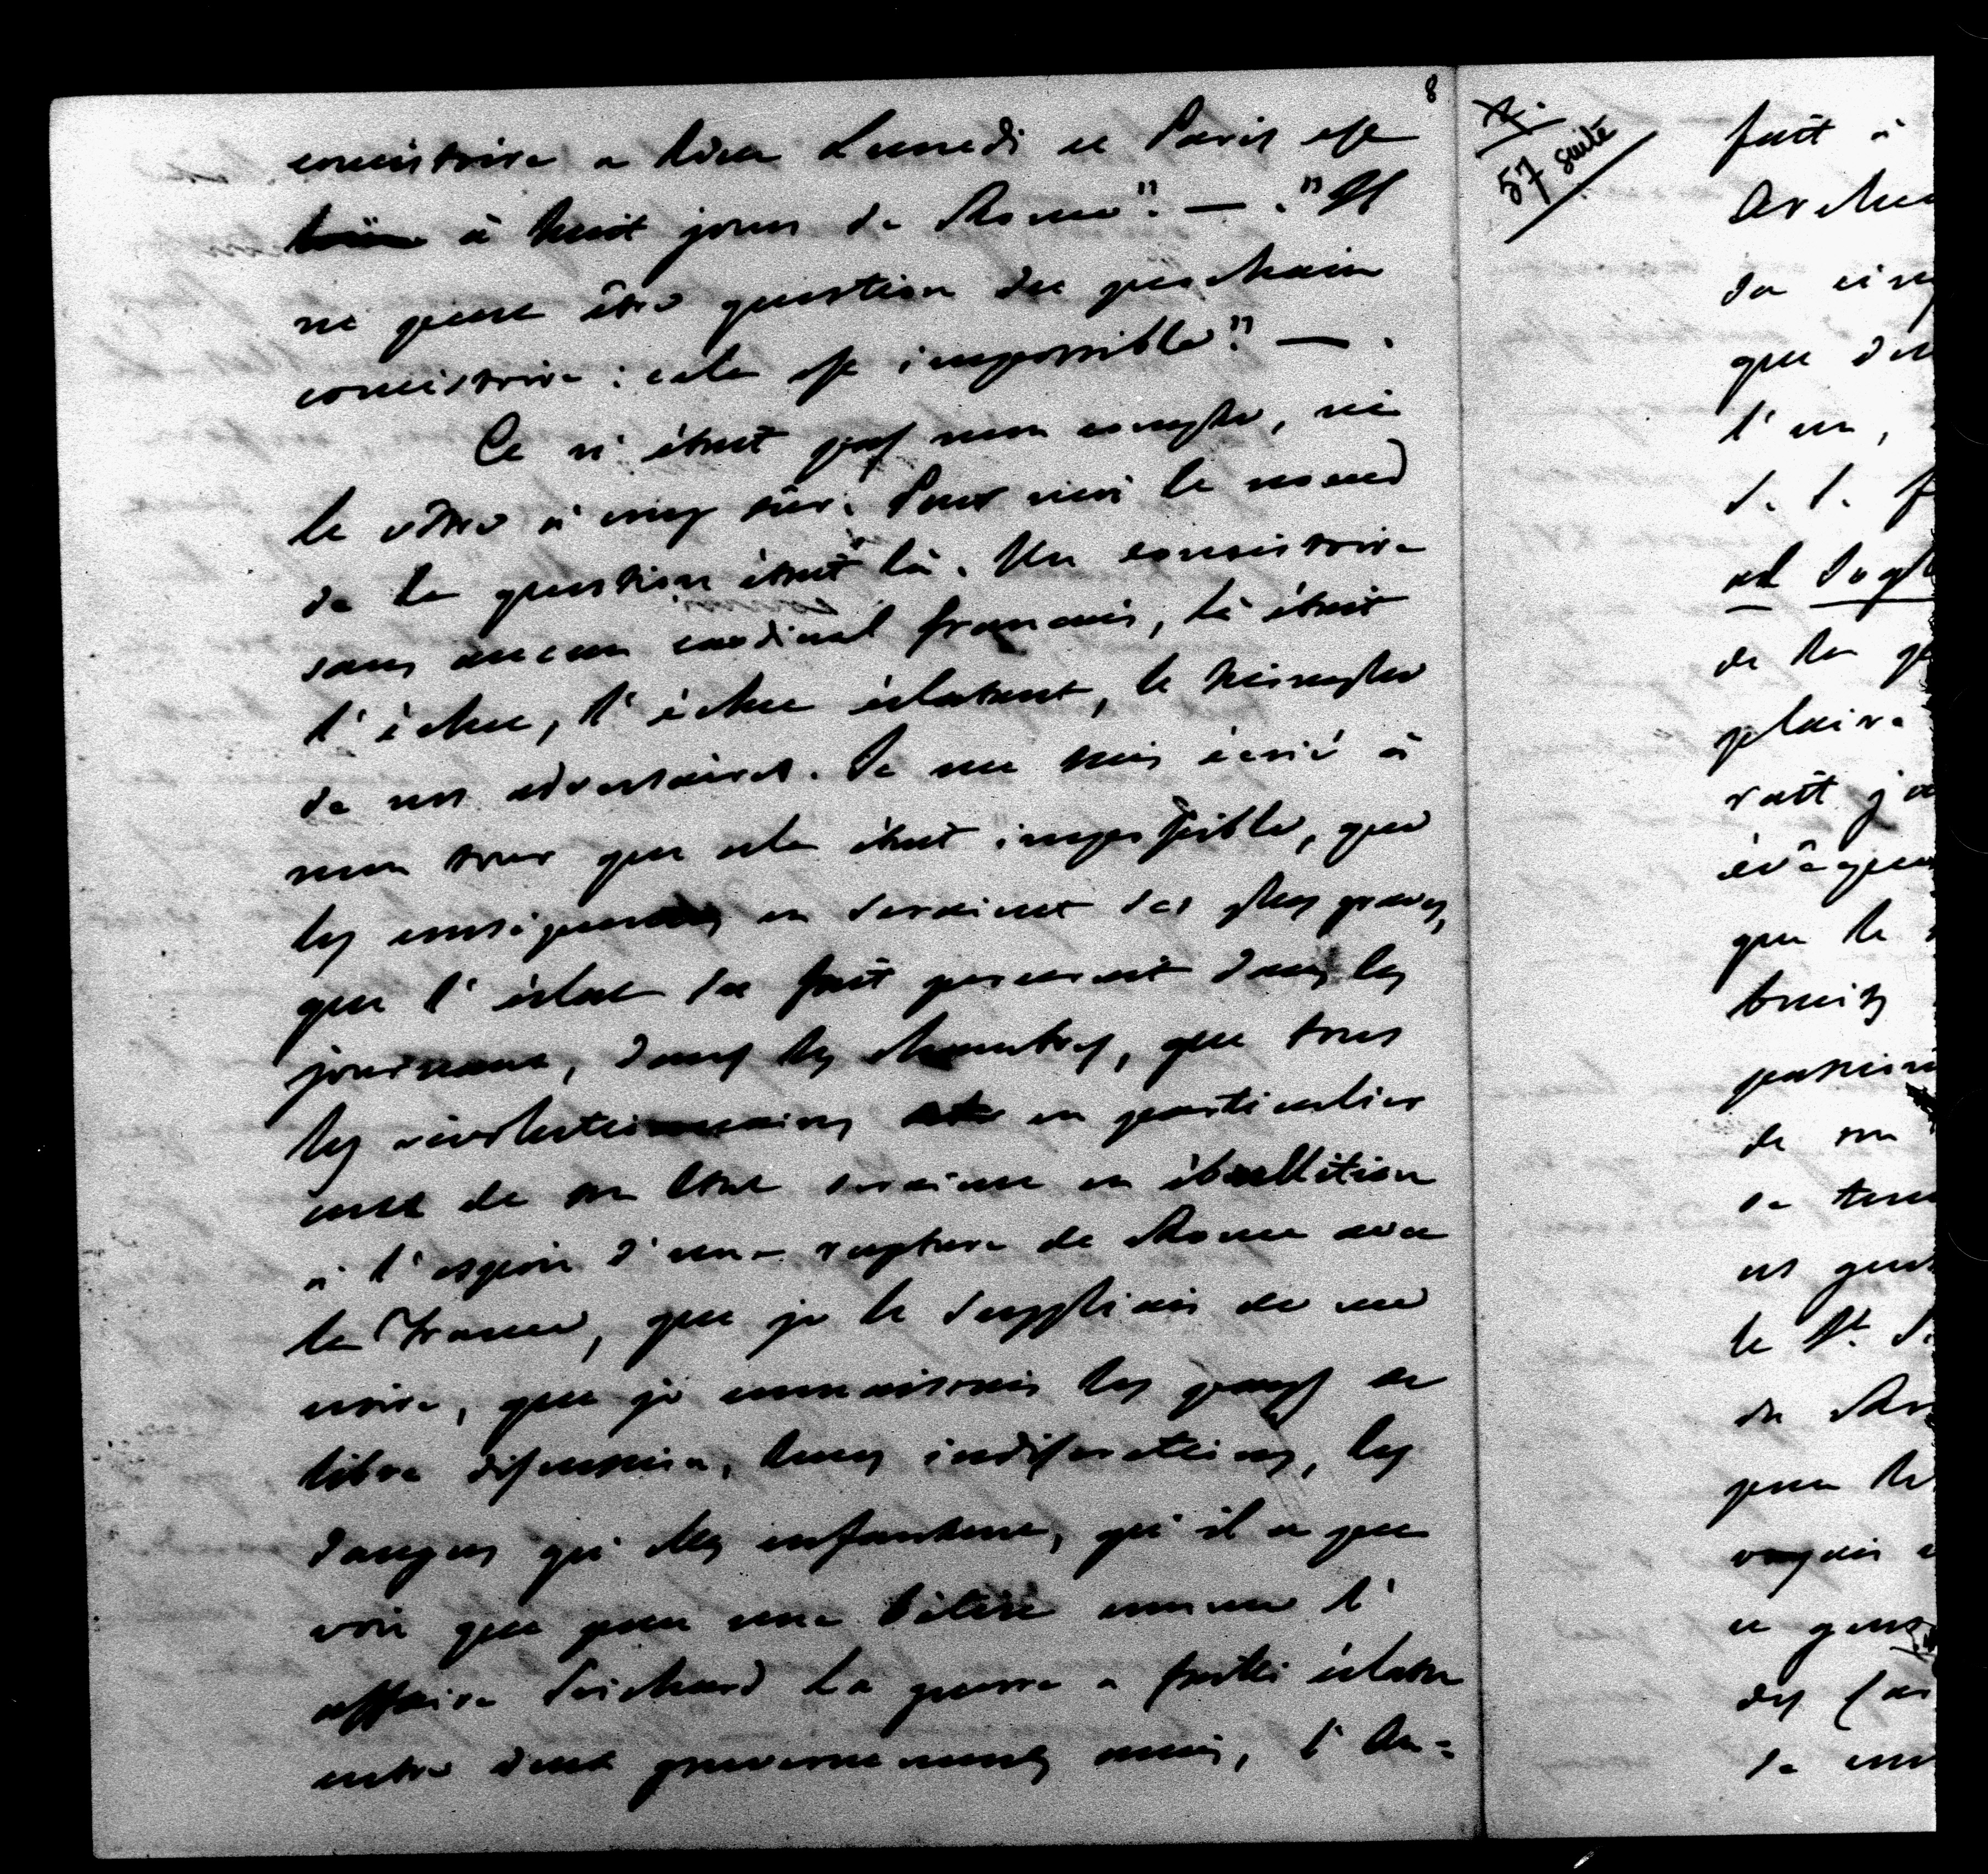 8
consistoire a lieu Lundi et Paris est
à huit jours de Rome". — . "Il
ne peut être question du prochain
consistoire : cela est impossible". — .
Ce n'était pas mon compte, ni
le vôtre à coup sûr. Pour moi le noeud
de la question était là. Un consistoire
sans aucun cardinal français, là était
l'échec, l'échec éclatant, le triomphe
de nos adversaires. Je me suis écrié à
mon tour que cela était impossible, que
les conséquences en seraient des plus graves,
que l'éclat du fait passerait dans les
journaux, dans les chambres, que tous
les révolutionnaires en particulier
ceux de son Etat seraient en ébullition
à l'espoir d'une rupture de Rome avec
la France, que je le suppliais de me
croire, que je connaissais les pays de
libre discussion, leurs indiscrétions, les
dangers qu'elles enfantent, qu'il a pu
voir que pour une bêtise comme l'
affaire Pritchard la guerre a failli éclater
entre deux gouvernements amis, l'An=
57 suite
fait à
que
l'un,
de la
plaire
que le
bruits
de son
le St.